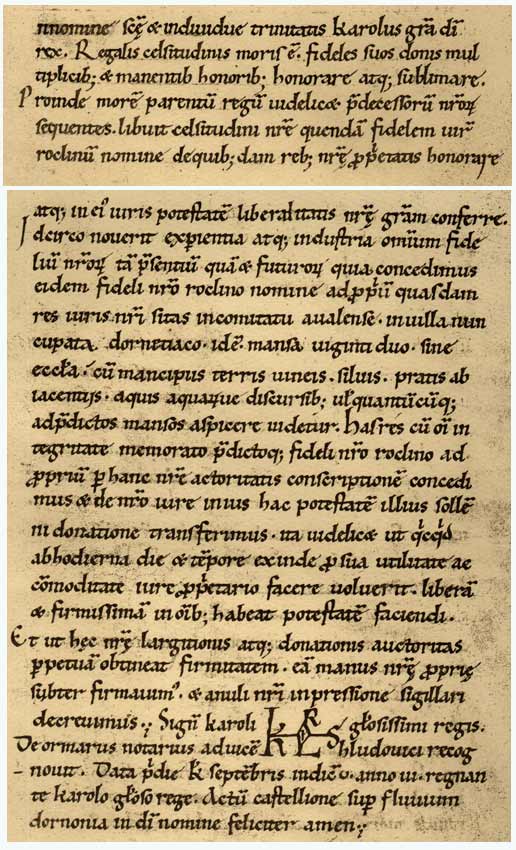 nnomine scę & individuę trinitatis karolus gra di
rex. Regalis celsitudinis moris ē. fideles suos donis mul
tiplicib; & manentib honorib; honorare atq; sublimare.
Proinde morē parentū regū videlicæ p̄decessorū nr̄oꝝ
sequentes. libuit celsitudini nr̄e quendā fidelem vir̄
roclinū nomine de quib;dam reb; nr̄ę ꝓp̄etatis honorare
atq; in ei' iuris potestatē liberalitatis nr̄ę gr̄am conferre.
Idcirco noverit experientia atq; industria omium fide
liū nr̄oꝝ tā p̄sentiū quā & futuroꝝ quia concedimus
eidem fideli nr̄o roclino nomine ad ꝓp̄iū quasdam
res iuris nr̄i sitas in comitatu avalense. in villa nun
cupata dornetiaco. id ē. mansa viginti duo. sine
eccl̄a. cū mancipiis terris vineis. silvis. pratis ab
iacentiis. aquis aquarūe discursib; ul̄ quantūcūq;
ad p̄dictos mansos aspicere videtur. Has res cū oī in
tegritate memorato p̄dictoq; fideli nr̄o roclino ad
ꝓpriū ꝑ hanc nr̄ę actoritatis conscriptionē concedi
mus & de nr̄o iure in ius hac potestatē illius sollē
ni donatione transferimus. ita videlicæ ut qicqd
ab hodierna die & tēpore exinde ꝓ sua utilitate ac
cōmoditate iure ꝓp̄etario facere voluerit. liberā
& firmissimā in oīb; habeat potestatē faciendi.
Et ut hęc nr̄ę largitionis atq; donationis auctoritas
ꝑpetuā obtineat firmitatem. eā manus nr̄ę ꝓprię
subter firmavim'. & anuli nr̄i inpressione sigillari
decrevimus. Signū karoli KRLS gl̄osissimi regis.
Deormarus notarius ad vicē hludovici recog
novit. Data p̄die kl̄ septēbris indic̄ v. anno vi. regnan
te karolo gl̄oso rege. Actū castellione sup̄ fluvium
dornonia in dī nomine feliciter amen;